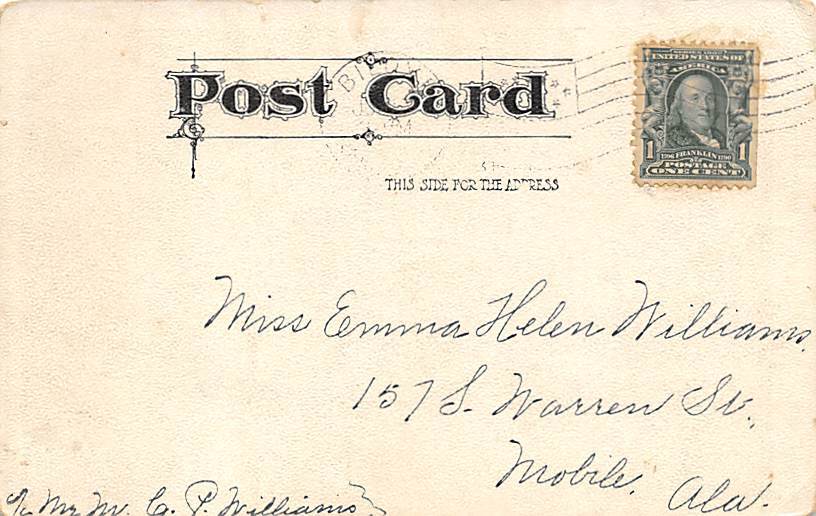 Post Card
THIS SIDE FOR THE ADDRESS
SERIES 1902
UNITED STATES OF
AMERICA
1 1706 FRANKLIN 1790 1
POSTAGE
ONE CENT
Miss Emma Helen Williams,
157 S. Warren St.,
Mobile, Ala.
c/o Mr. W. G. P. Williams